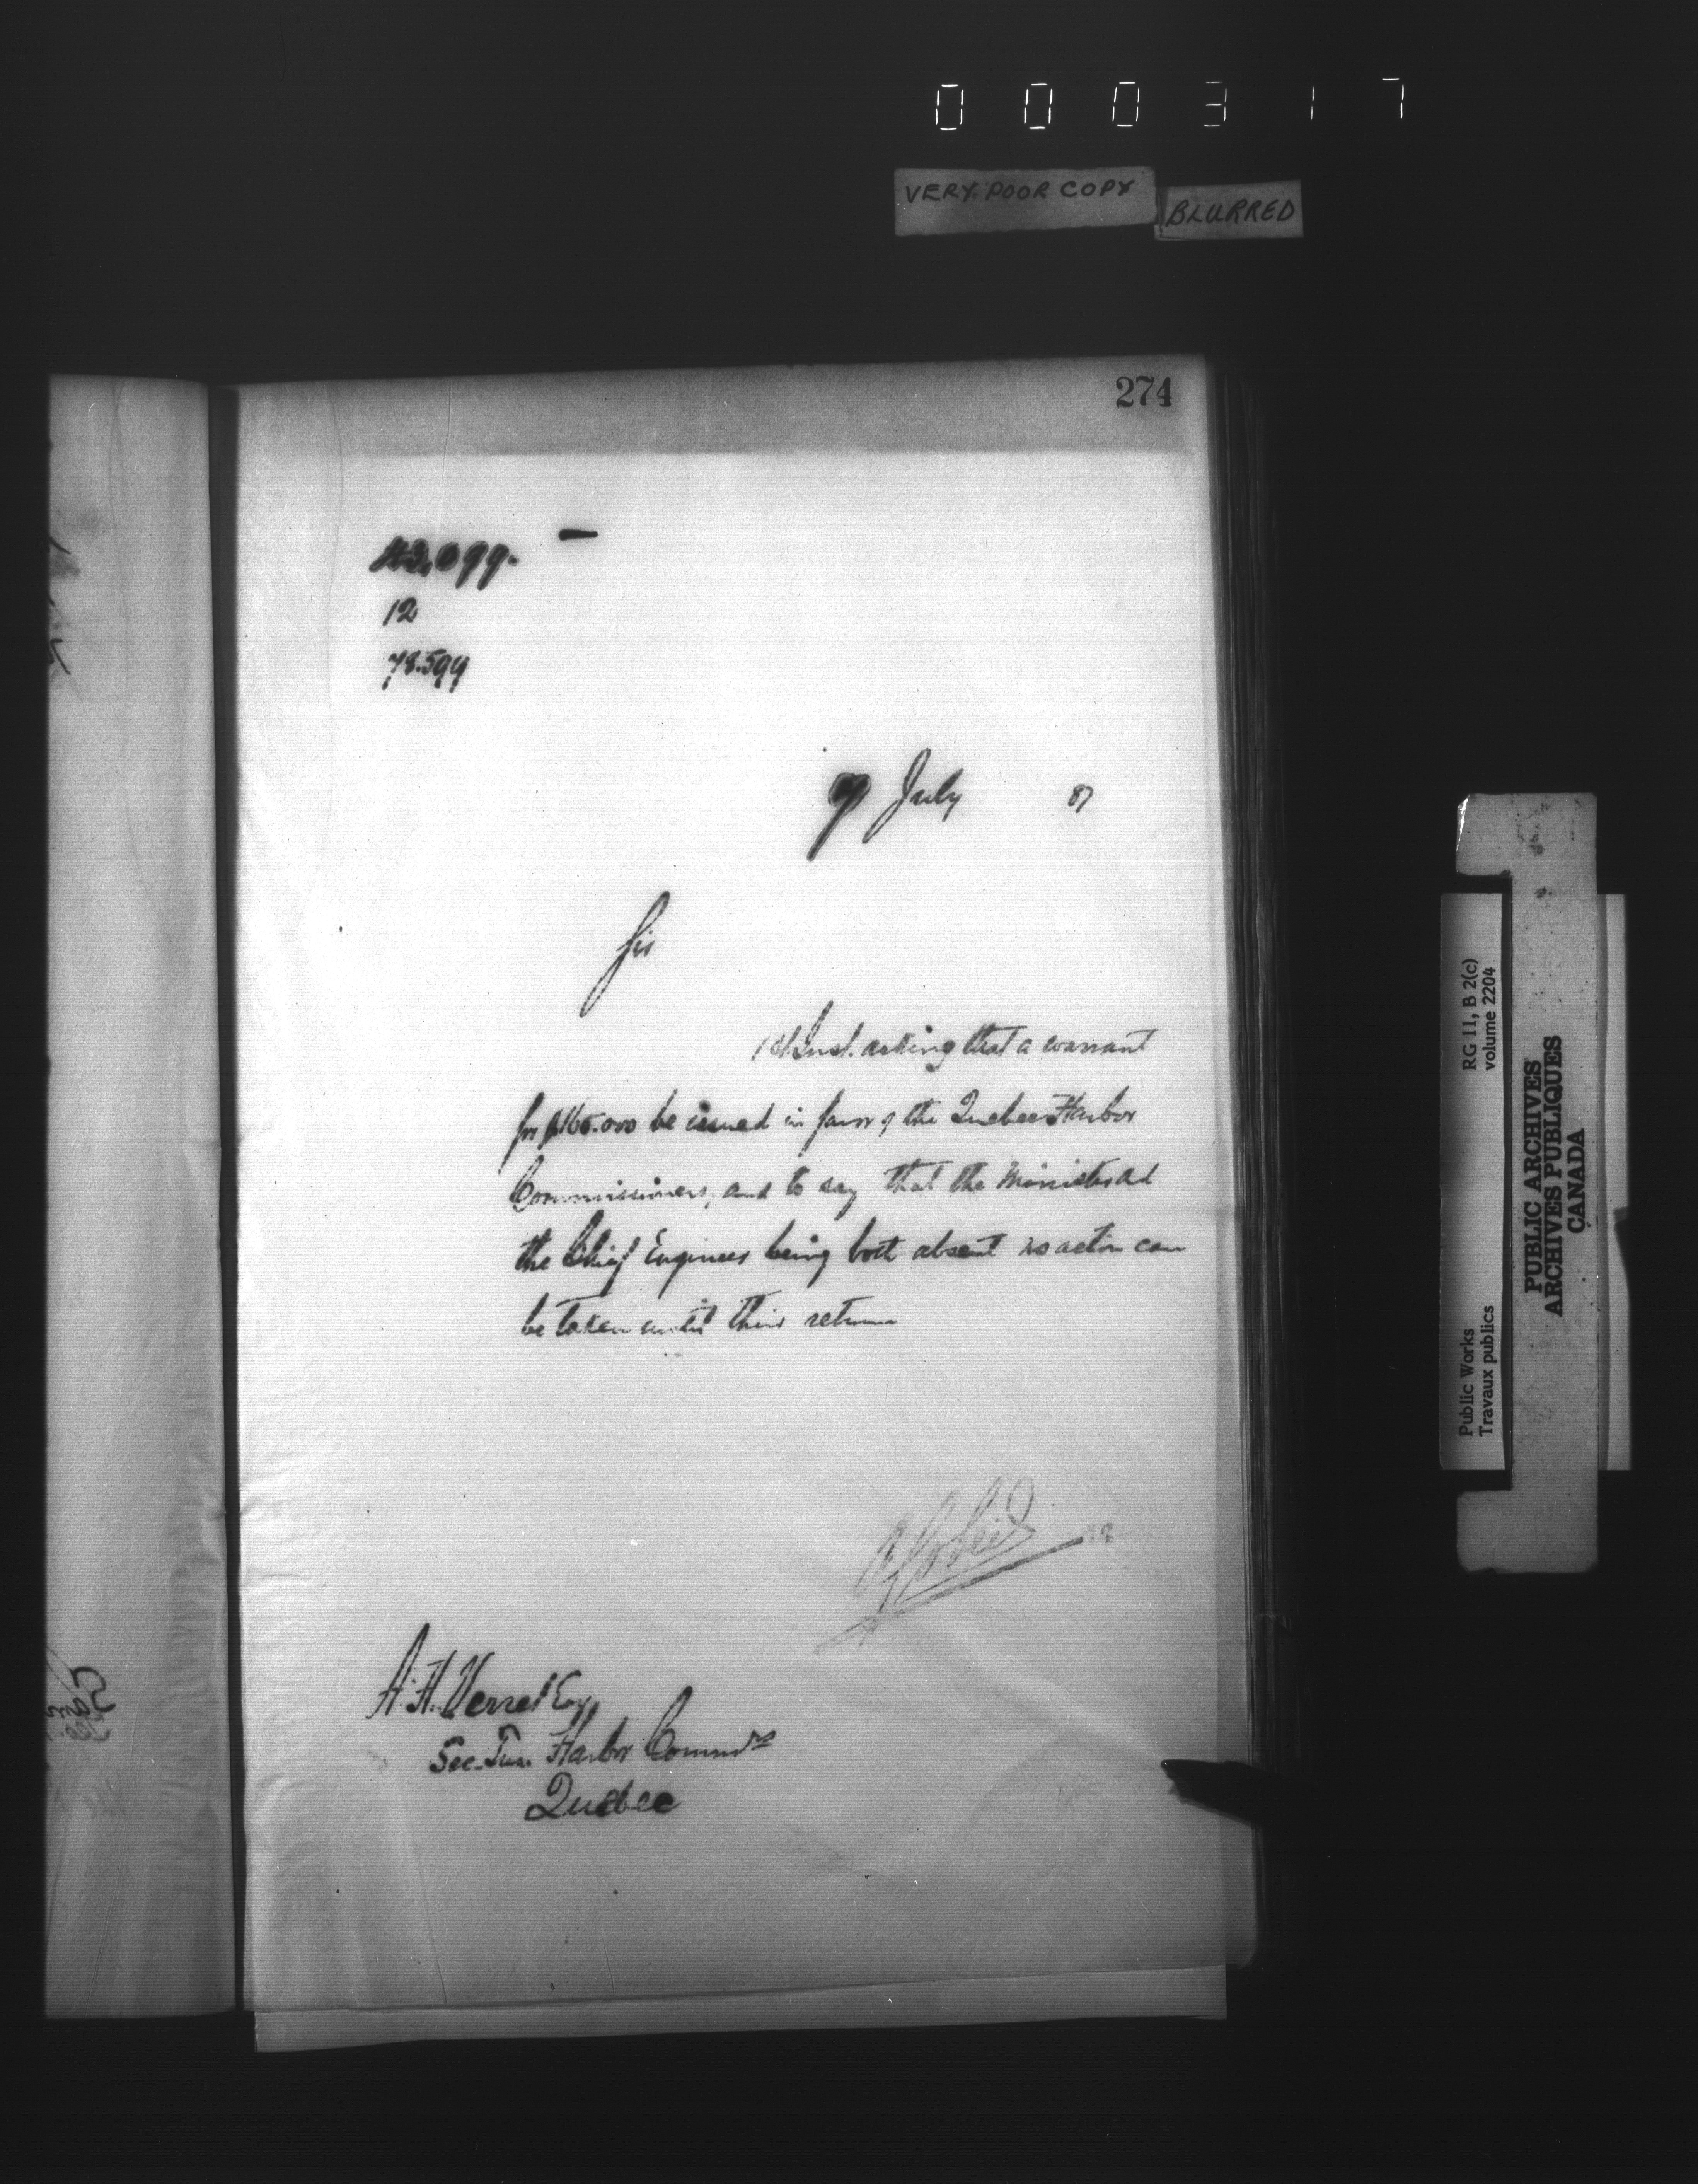 000317
VERY POOR COPY
BLURRED
274
12
78.599
9 July 87
Sir
1st Inst. asking that a warrant
for be issued in favor of the Quebec Harbor
Commissioners, and to say that the Minister and
the Chief Engineer being both absent no action can
be taken until their return
A. H. Verret Esq
Sec. Harbor Commrs
Quebec
Public Works
Travaux publics
RG 11, B 2(c)
volume 2204
PUBLIC ARCHIVES
ARCHIVES PUBLIQUES
CANADA